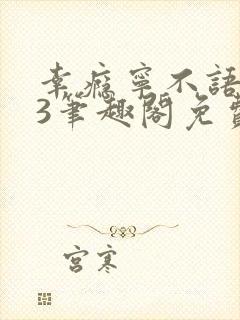 幸瘾宁不語
3笔趣閣免費
宫寒